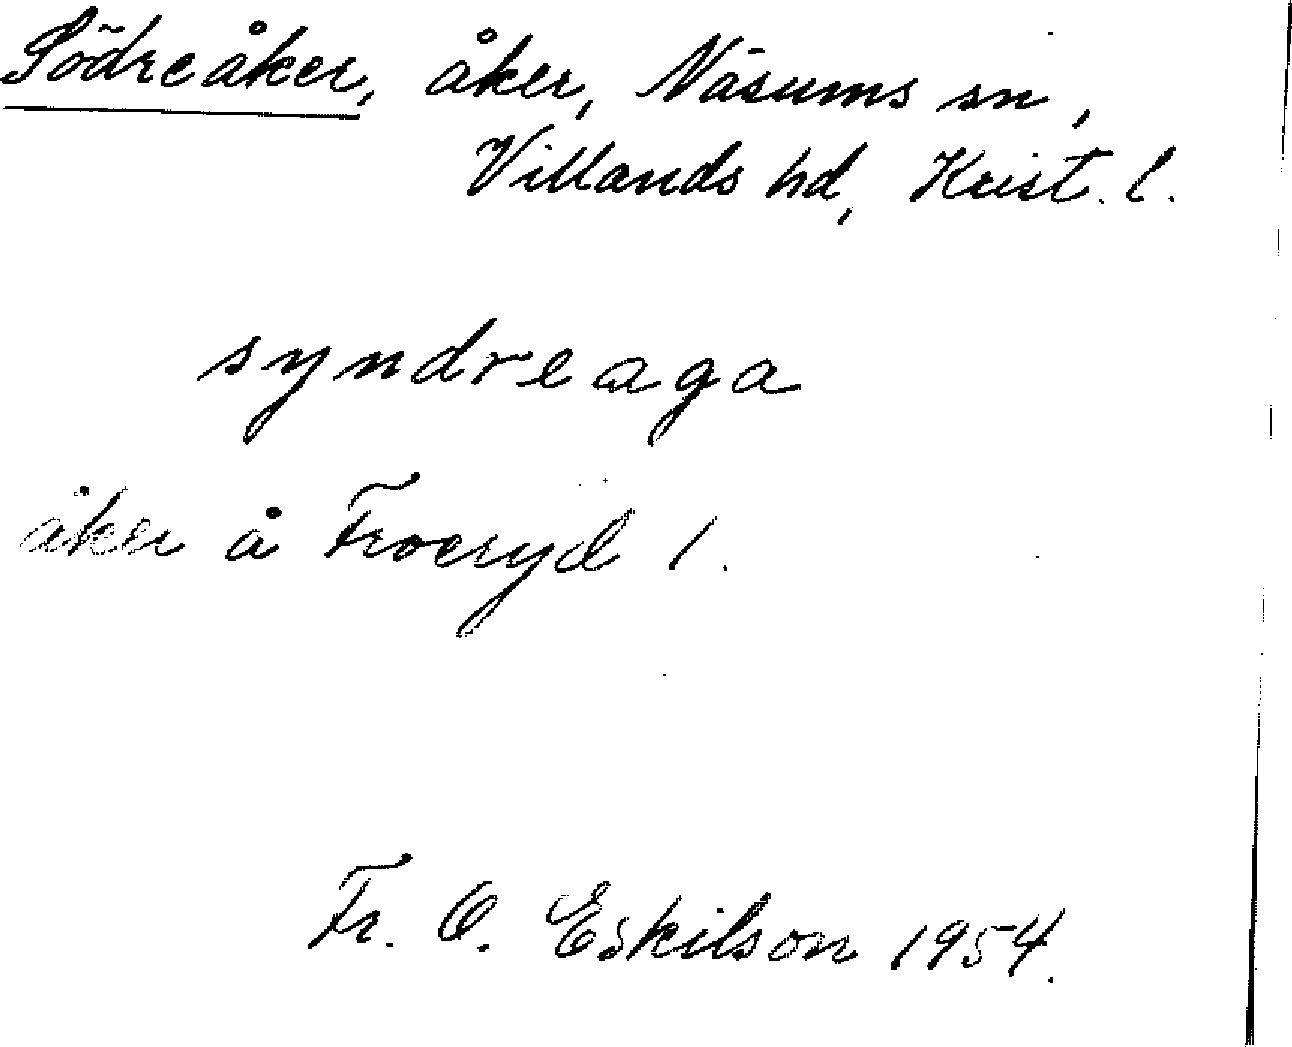 Södreåker, åker, Näsums sn,
Villands hd, Krist. l.
syndreaga
åker å Froeryd 1.
Fr. O. Eskilson 1954.